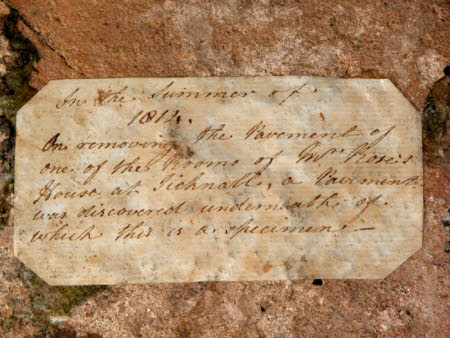 In the Summer of
1814.
On removing the Pavement of
one of the Rooms of Mrs. Rose's
House at Ticknall, a Pavement
was discovered underneathe of
which this is a specimen—